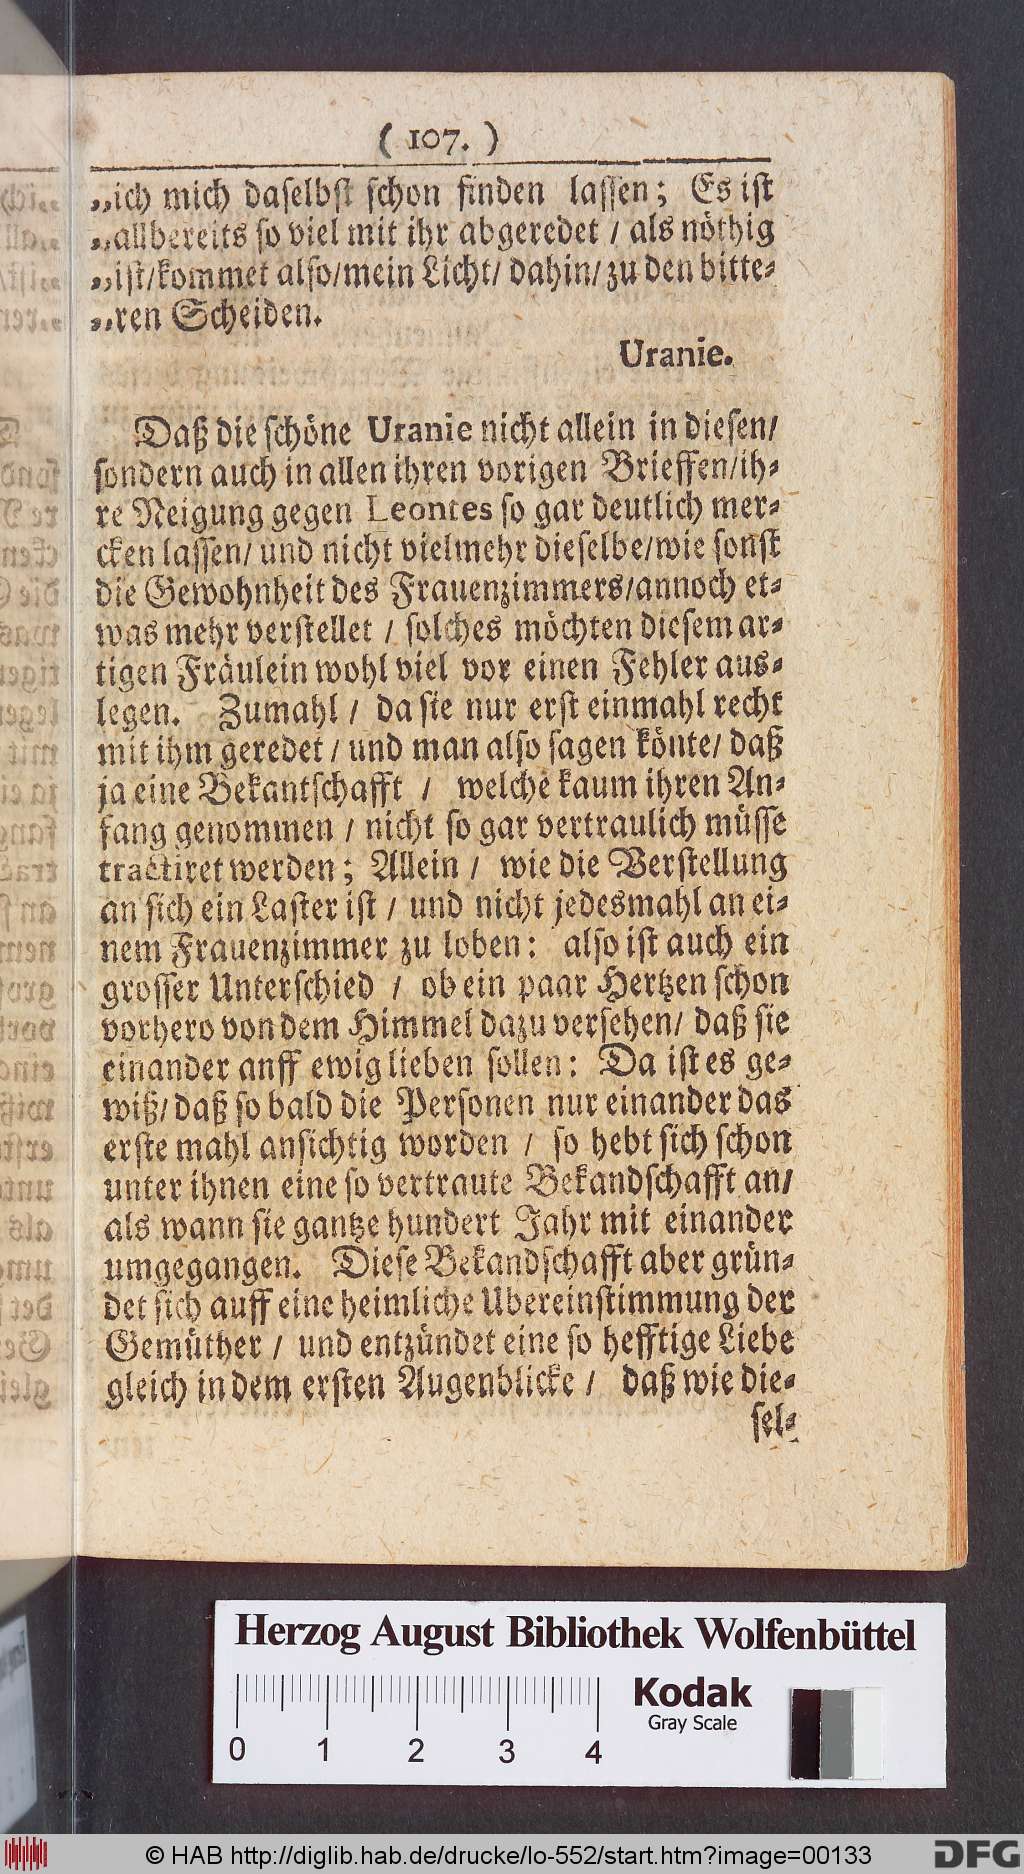 ( 107. )
„ich mich daselbst schon finden lassen; Es ist
„allbereits so viel mit ihr abgeredet / als nöthig
„ist/kommet also/mein Licht/ dahin/ zu den bitte-
„ren Scheiden.
Uranie.
Daß die schöne Uranie nicht allein in diesen/
sondern auch in allen ihren vorigen Brieffen/ih-
re Neigung gegen Leontes so gar deutlich mer-
cken lassen/ und nicht vielmehr dieselbe/wie sonst
die Gewohnheit des Frauenzimmers/annoch et-
was mehr verstellet / solches möchten diesem ar-
tigen Fräulein wohl viel vor einen Fehler aus-
legen. Zumahl / da sie nur erst einmahl recht
mit ihm geredet / und man also sagen könte/ daß
ja eine Bekantschafft / welche kaum ihren An-
fang genommen / nicht so gar vertraulich müsse
tractiret werden; Allein / wie die Verstellung
an sich ein Laster ist / und nicht jedesmahl an ei-
nem Frauenzimmer zu loben: also ist auch ein
grosser Unterschied / ob ein paar Hertzen schon
vorhero von dem Himmel dazu versehen/ daß sie
einander anff ewig lieben sollen: Da ist es ge-
wiß/ daß so bald die Personen nur einander das
erste mahl ansichtig worden / so hebt sich schon
unter ihnen eine so vertraute Bekandschafft an/
als wann sie gantze hundert Jahr mit einander
umgegangen. Diese Bekandschafft aber grün-
det sich auff eine heimliche Ubereinstimmung der
Gemüther / und entzündet eine so hefftige Liebe
gleich in dem ersten Augenblicke / daß wie die-
sel-
Herzog August Bibliothek Wolfenbüttel
Kodak
Gray Scale
0 1 2 3 4
© HAB http://diglib.hab.de/drucke/lo-552/start.htm?image=00133
DFG